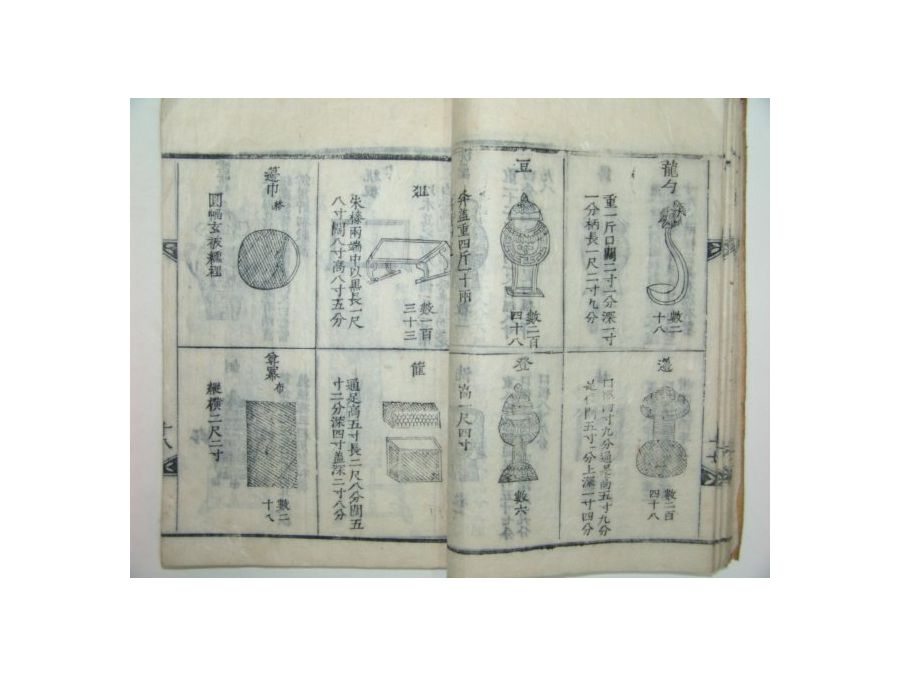 龍勺
重一斤口闊二寸一分深一寸
一分柄長一尺二寸九分
數二
十八
籩
口徑四寸九分通足高五寸九分
足徑闊五寸一分上深一寸四分
數二百
四十八
豆
并蓋重四斤一十兩
數二百
四十八
登
高一尺四寸
數六
俎
朱漆兩端中以黑長一尺
八寸闊八寸高八寸五分
數一百
三十三
篚
通足高五寸長二尺八分闊五
寸二分深四寸蓋深二寸八分
籩巾 絺
圓幅玄被纁裡
尊冪 布
縱橫二尺二寸
數二
十八
十八